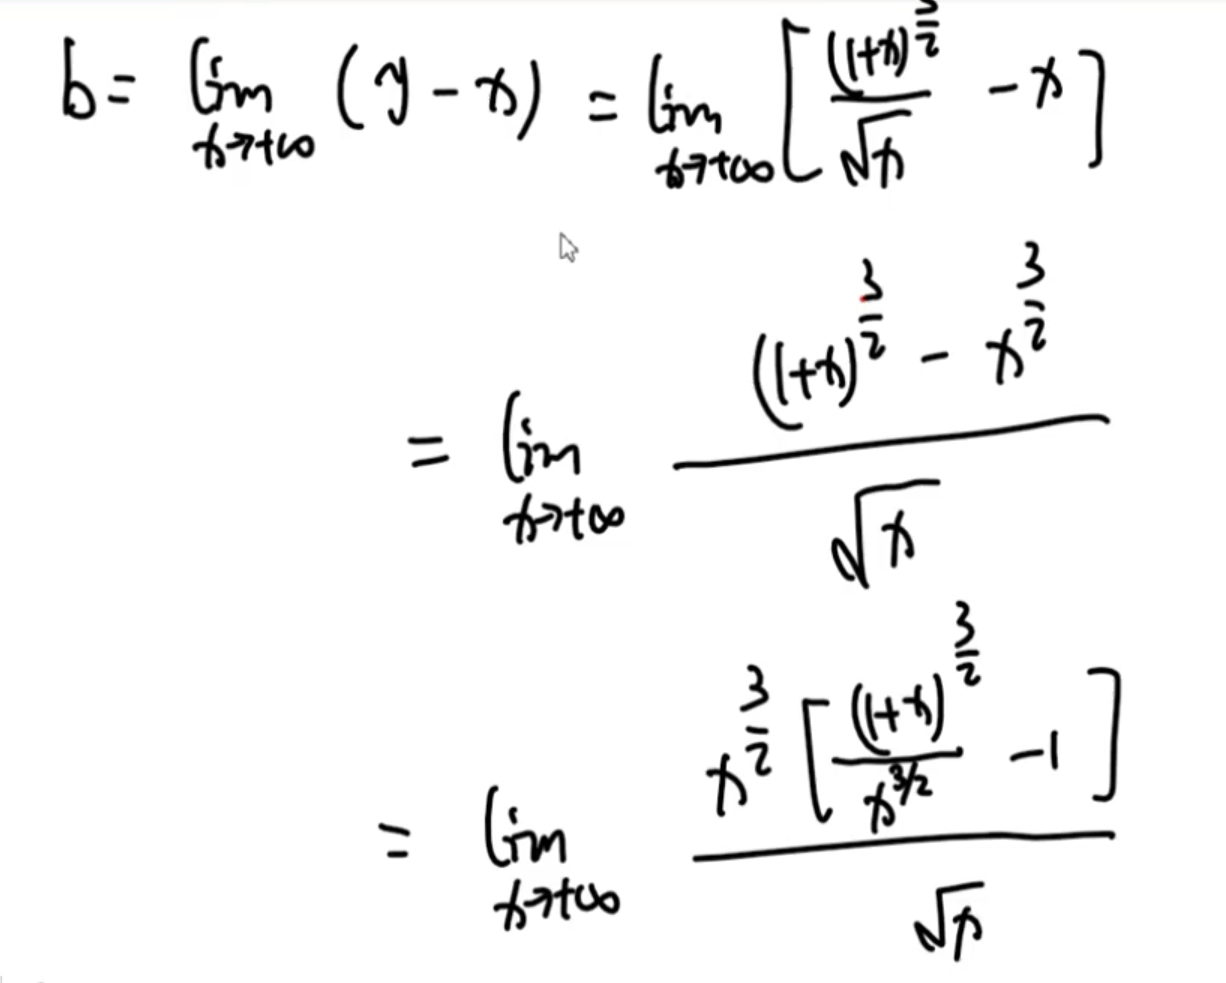 b = lim_{x→+∞} (y − x) = lim_{x→+∞} [ (1+x)^{3/2} / √x − x ]
= lim_{x→+∞} ((1+x)^{3/2} − x^{3/2}) / √x
= lim_{x→+∞} x^{3/2} [ (1+x)^{3/2} / x^{3/2} − 1 ] / √x